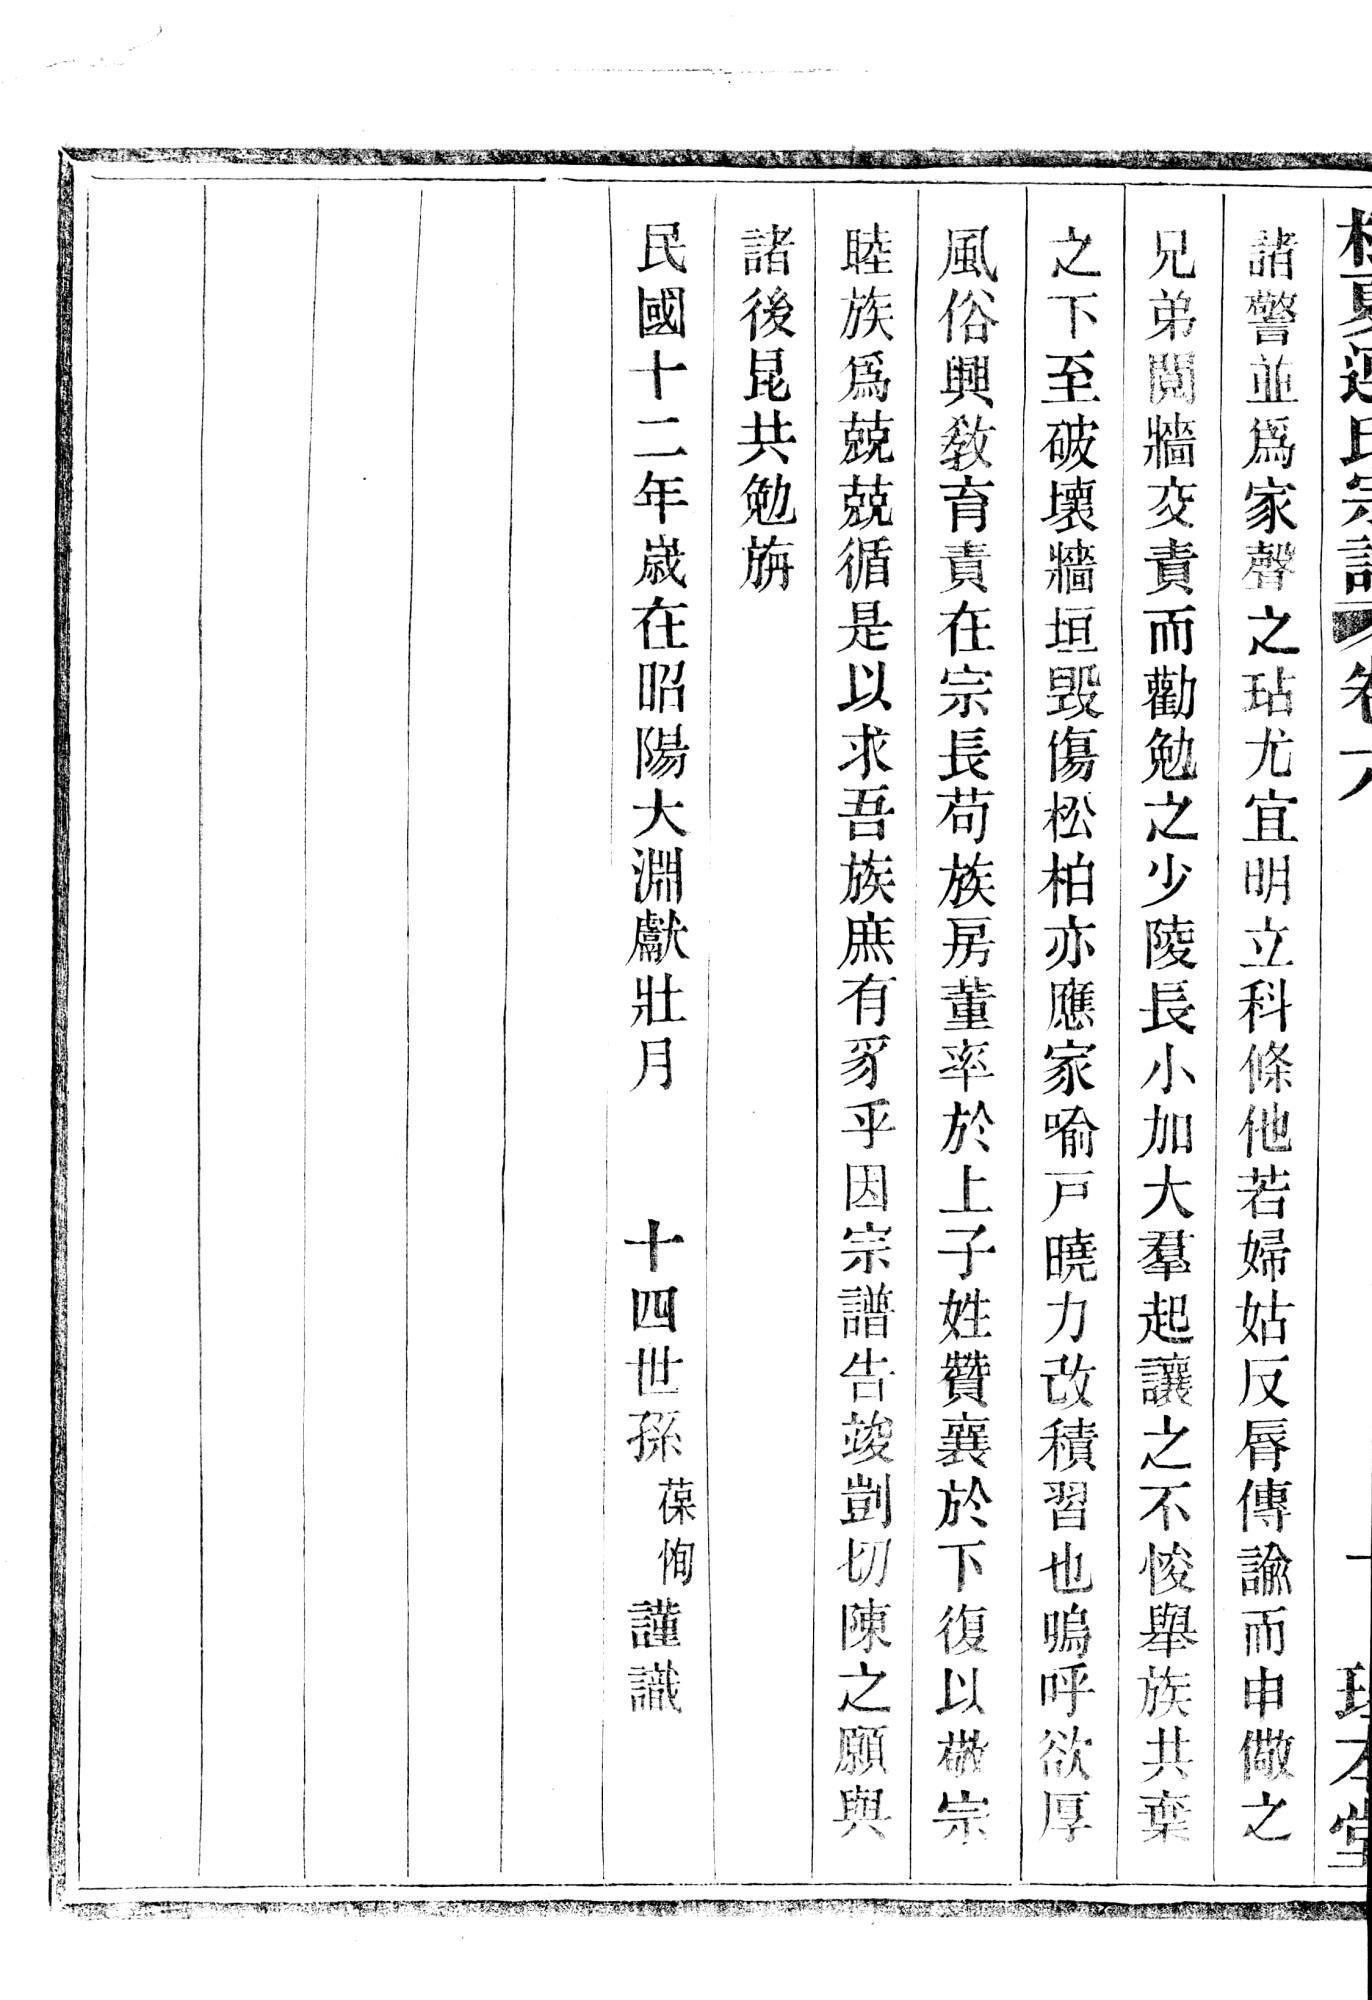 氏宗譜 卷六
堂
諸警並爲家聲之玷尤宜明立科條他若婦姑反脣傳諭而申儆之
兄弟鬩牆交責而勸勉之少陵長小加大羣起讓之不悛舉族共棄
之下至破壞牆垣毀傷松柏亦應家喻戸曉力改積習也嗚呼欲厚
風俗興敎育責在宗長苟族房董率於上子姓贊襄於下復以敬宗
睦族爲兢兢循是以求吾族庶有豸乎因宗譜告竣剴切陳之願與
諸後昆共勉旃
民國十二年歲在昭陽大淵獻壯月 十四世孫葆恂謹識